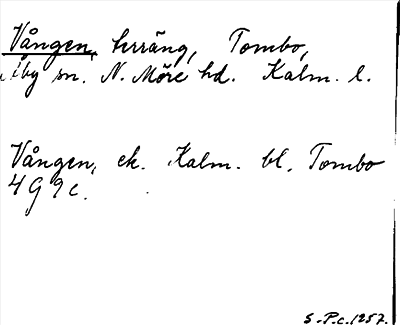 Vången, hrräng, Tombo,
Åby sn. N. Möre hd. Kalm. l.
Vången, ek. Kalm. bl. Tombo
4 G 9 c.
S.-P.c. 1257.